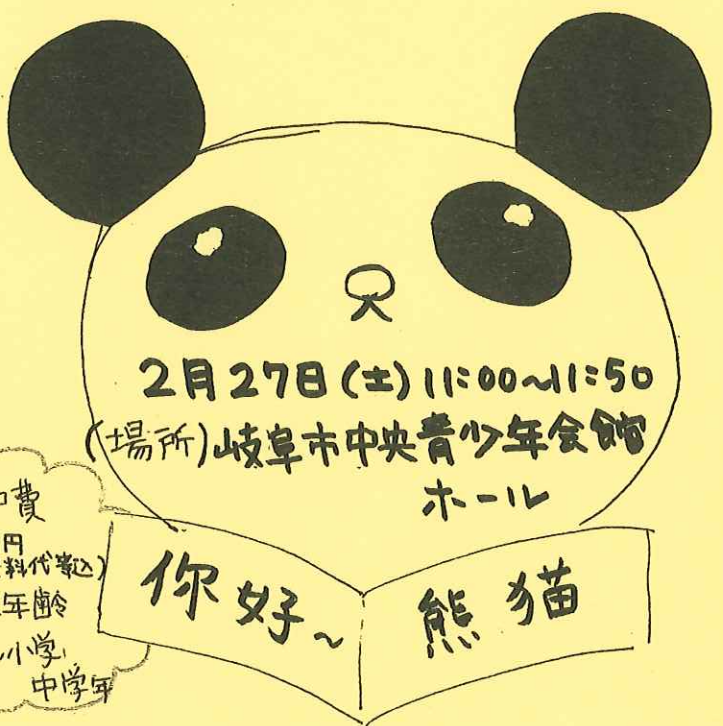 2月27日(土)11:00~11:50
(場所)岐阜市中央青少年会館
ホール
你好~ 熊猫
費
円
料代等込)
年齢
小学
中学年